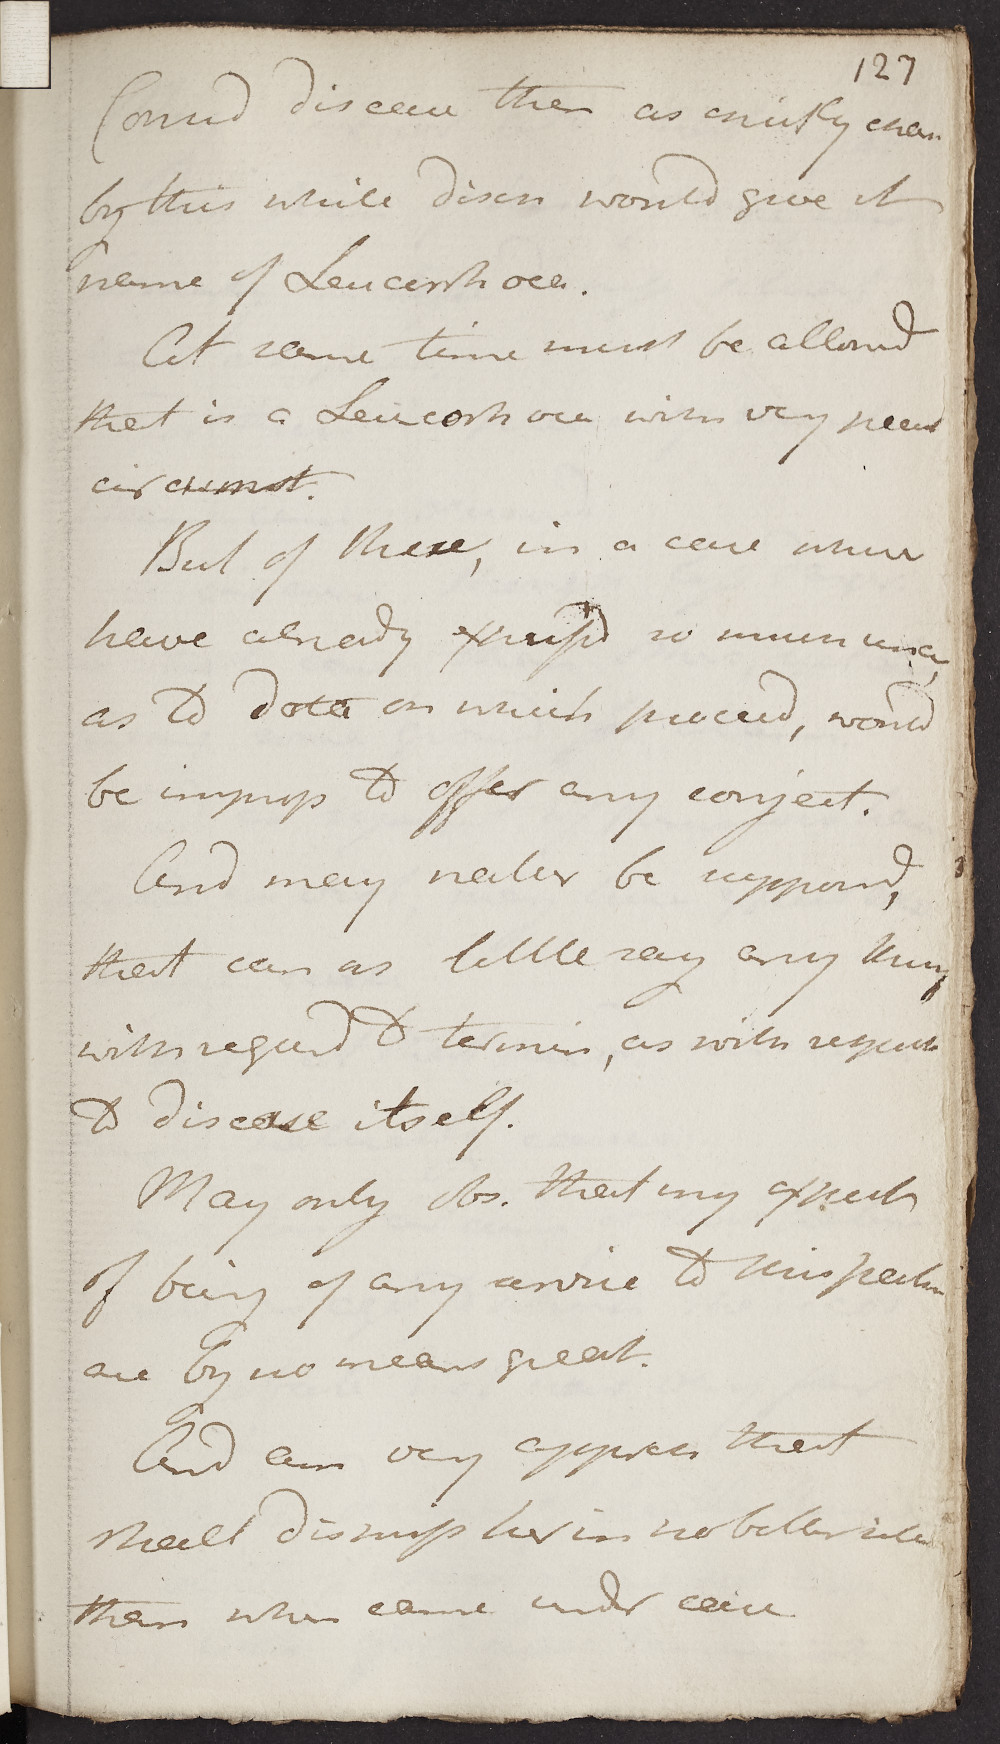 127
Consid disease then as chiefly char
by this while discn would give it
name of Leucorrhoea.
At same time must be allowd
that is a Leucorrhoea with very pecul
circumst.
But of these, in a case where
have already expressd so much uncer,
as to data on which proceed, would
be improp to offer any conject.
And may natur be supposd,
that can as little say any thing
with regard to termin, as with respect
to disease itself.
May only obs. that my expects
of being of any service to this patien
are by no means great.
And am very appreh that
shall dismiss her in no better situa
than when came under care